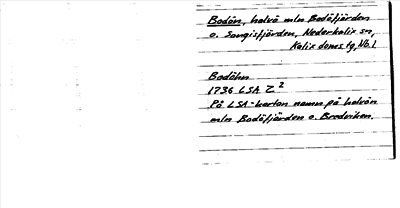 Bodön, halvö mln Bodöfjärden
o. Sangisfjärden, Nederkalix sn,
Kalix doms.tg, Nb.l.
Bodöhn
1736 LSA Z²
På LSA-kartan namn på halvön
mln Bodöfjärden o. Bredviken.